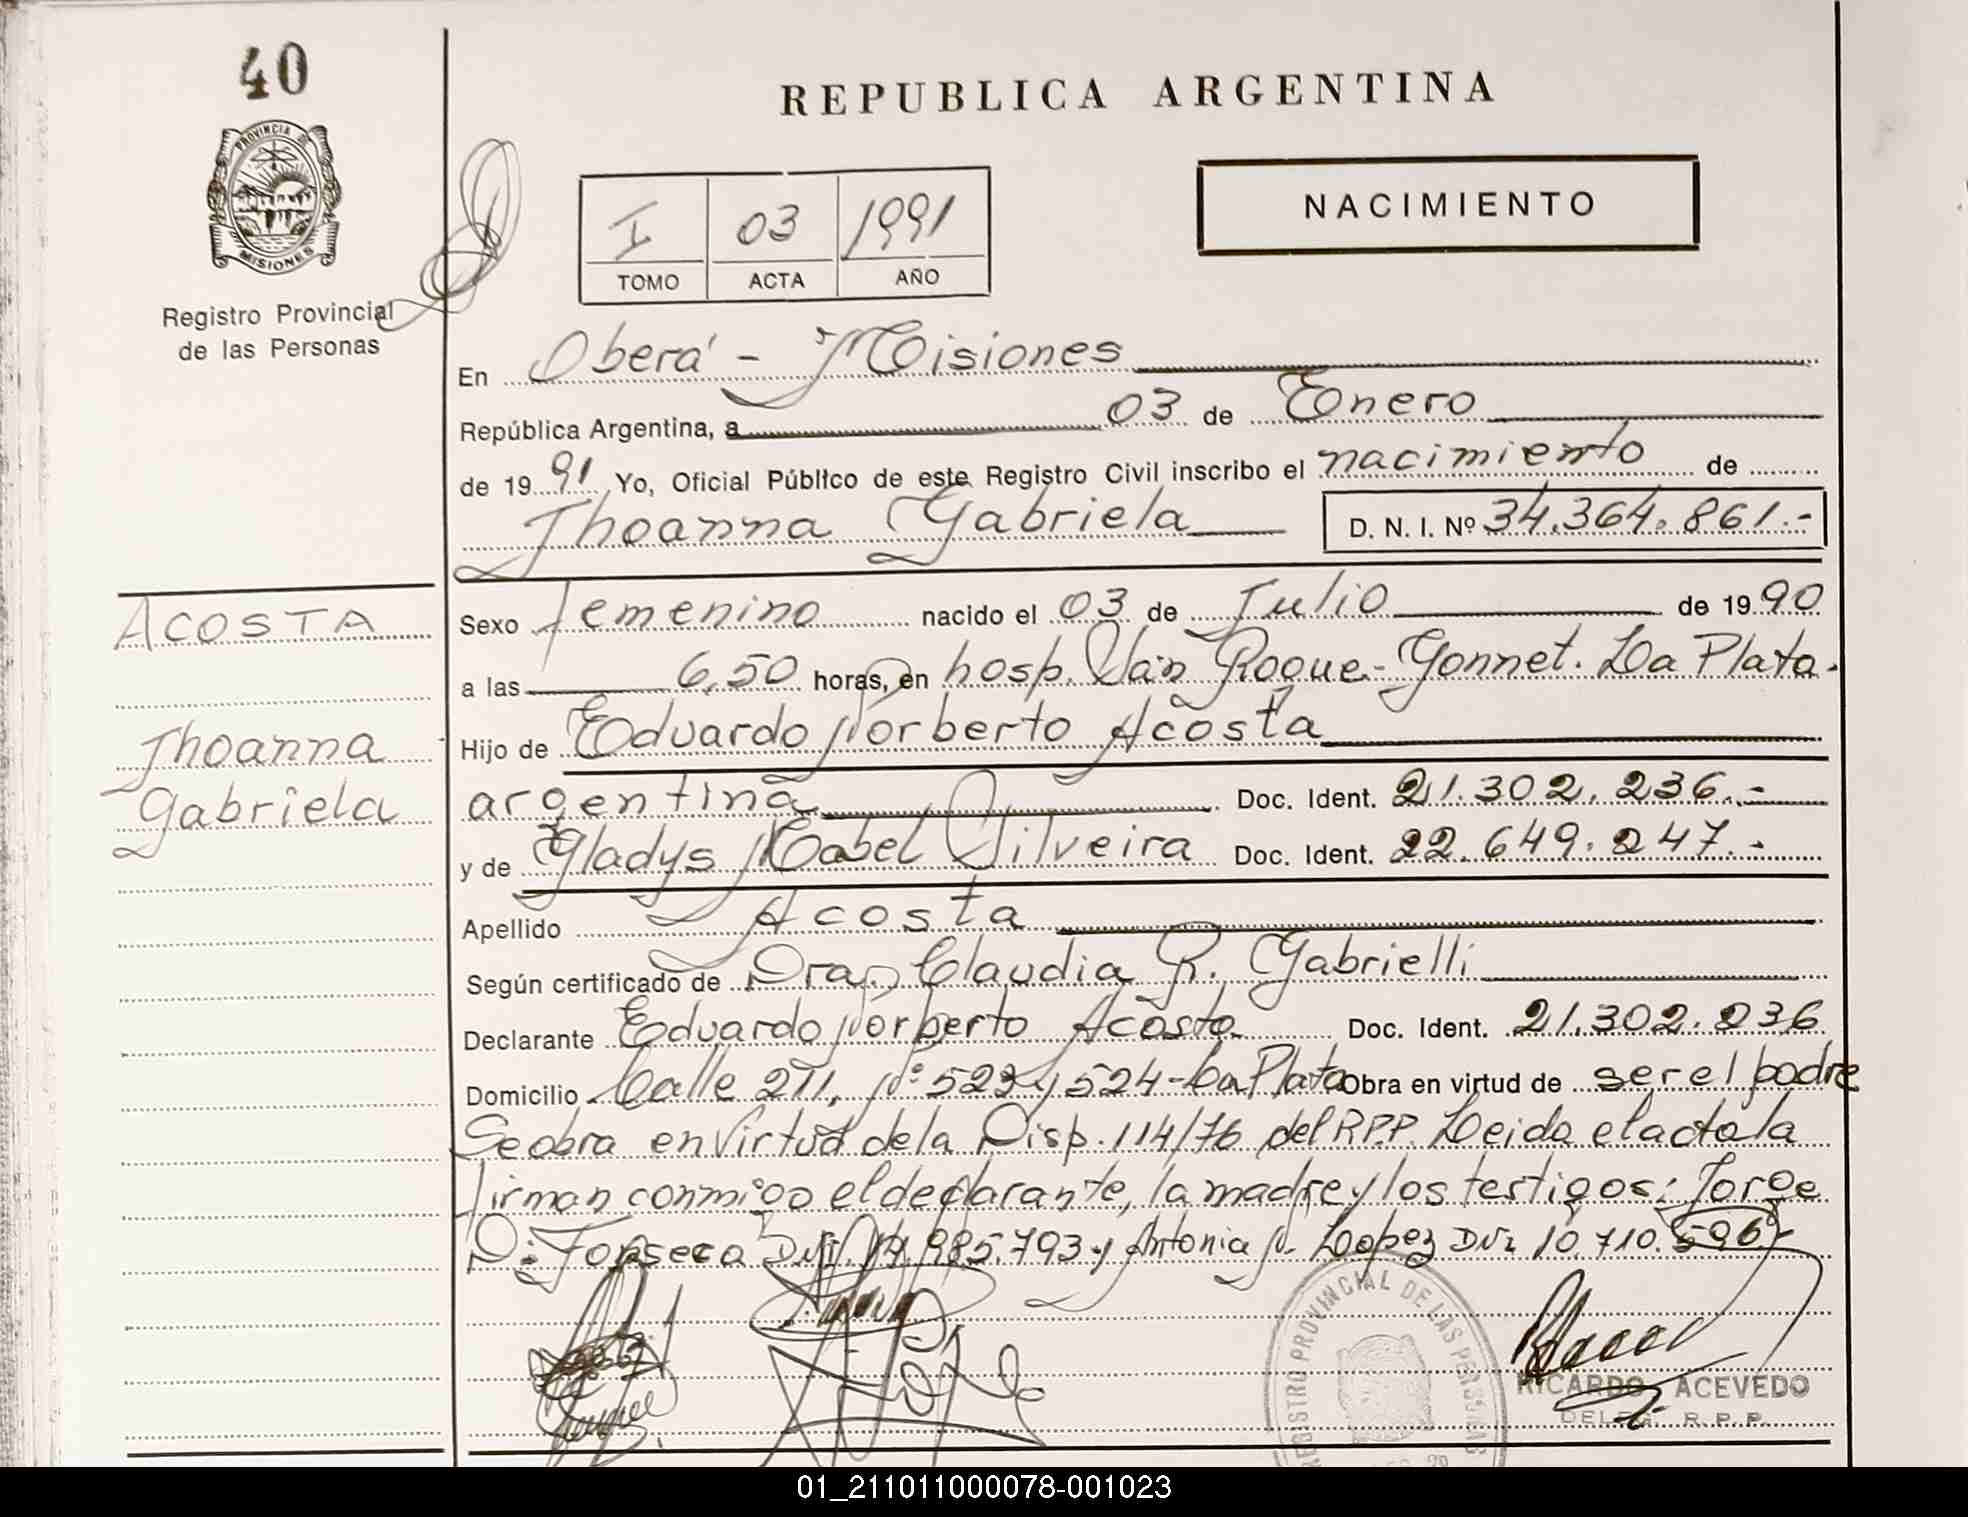 40
REPUBLICA ARGENTINA
PROVINCIA D
MISIONES
Registro Provincial
de las Personas
I 03 1991
TOMO ACTA AÑO
NACIMIENTO
En Oberá - Misiones
República Argentina, a 03 de Enero
de 19 91 Yo, Oficial Público de este Registro Civil inscribo el nacimiento de
Jhoanna Gabriela D. N. I. Nº 34.364.861.-
ACOSTA
Jhoanna
Gabriela
Sexo femenino nacido el 03 de Julio de 19 90
a las 6,50 horas, en hosp. San Roque - Gonnet. La Plata.
Hijo de Eduardo Norberto Acosta
argentina Doc. Ident. 21.302.236.-
y de Gladys Mabel Silveira Doc. Ident. 22.649.247.-
Apellido Acosta
Según certificado de Dra. Claudia R. Gabrielli
Declarante Eduardo Norberto Acosta Doc. Ident. 21.302.236
Domicilio Calle 211, Nº 523 y 524 - La Plata Obra en virtud de ser el padre
Se obra en virtud de la Disp. 114/76 del R.P.P. Leida el acta la
firman conmigo el declarante, la madre y los testigos: Jorge
D. Fonseca DNI. 14.985.793 y Antonia N. Lopez DNI 10.710.596
REGISTRO PROVINCIAL DE LAS PERSONAS
RICARDO ACEVEDO
DELEG. R. P. P.
01_211011000078-001023